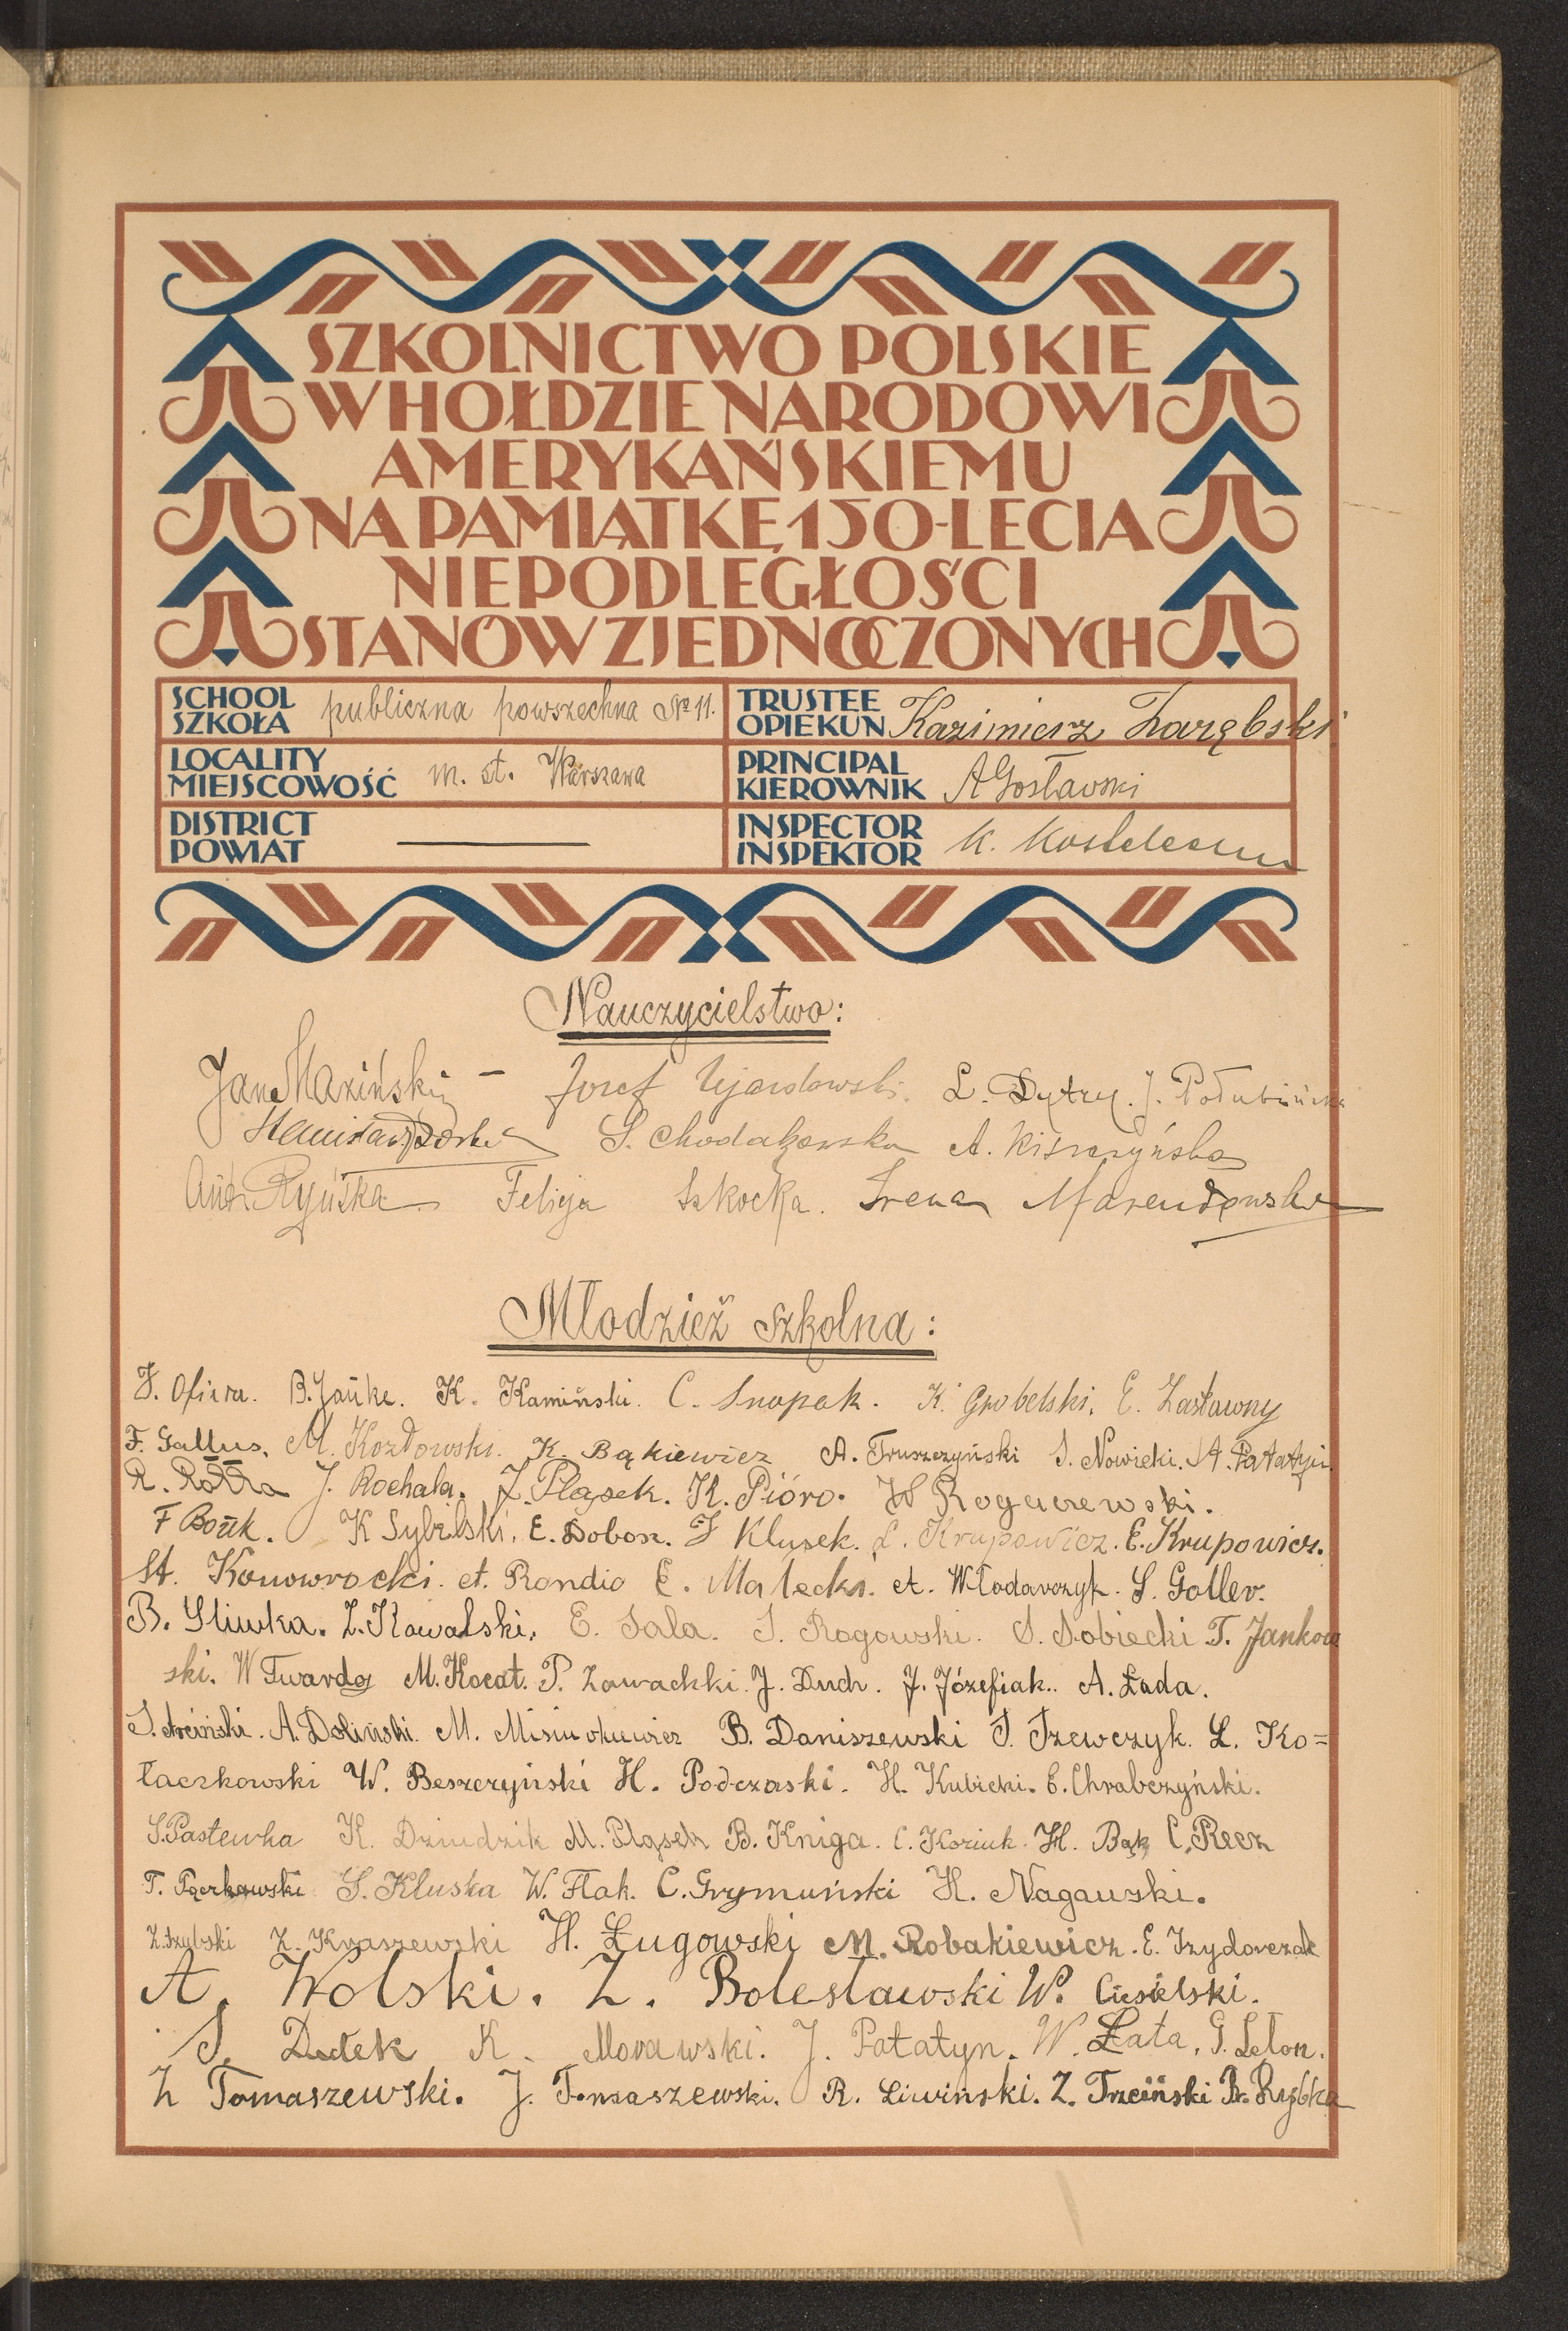 SZKOLNICTWO POLSKIE
W HOŁDZIE NARODOWI
AMERYKAŃSKIEMU
NA PAMIĄTKĘ 150-LECIA
NIEPODLEGŁOŚCI
STANÓW ZJEDNOCZONYCH
SCHOOL
SZKOŁA publiczna powszechna № 11.
TRUSTEE
OPIEKUN Kazimierz Zarębski
LOCALITY
MIEJSCOWOŚĆ m. st. Warszawa
PRINCIPAL
KIEROWNIK A Gosławski
DISTRICT
POWIAT
INSPECTOR
INSPEKTOR K.
Nauczycielstwo:
Jan Maziński – Józef Ujazdowski. L. Dytry. J. Połubińska
Stanisław S. Chodakowska A. Kiszczyńska
Ryńska Felicja Szkocka. Irena Marendowska
Młodzież szkolna:
F. Ofiara. B. Jańke. K. Kamiński. C. Snopek. K. Grobelski. E. Zasławny
F. Gallus. M. Kozłowski. K. Bąkiewicz A. Truszczyński S. Nowicki. A. Patatyn.
R. Rotta J. Kochala. J. Pląsek. K. Pióro. W Rogaczewski.
F Bońk. K Sybilski. E. Dobosz. J Klusek. L. Krupowicz. E. Krupowicz.
St. Konowrocki. A. Rondio E. Małecki. A. Włodarczyk. S. Goller.
B. Śliwka. Z. Kowalski. E. Sala. S. Rogowski. S. Sobiecki T. Jankow
ski. W Twardo M. Kocat. P. Zawadzki. J. Duch. J. Józefiak.. A. Łada.
A. Doliński. M. B. Daniszewski S. Szewczyk. L. Ko=
łaczkowski W. Beszczyński H. Podczaski. H. Kubicki. E. Chrabczyński.
S. Pastewka K. Dziudzik M. Pląsek B. Kniga. C. Koziuk. H. Bąk C. Recz
T. Pączkowski S. Kluska W. Flak. C. Grymuński H. Nagauski.
Z. Szulski Z. Kraszewski H. Ługowski M. Robakiewicz. E. Izydorczak
A. Wolski. Z. Bolesławski W. Ciesielski.
S. Dudek K. Morawski. J. Patatyn. W. Łata. G. Leton.
Z Tomaszewski. J. Tomaszewski. R. Liwiński. Z. Trzciński Br. Rybka